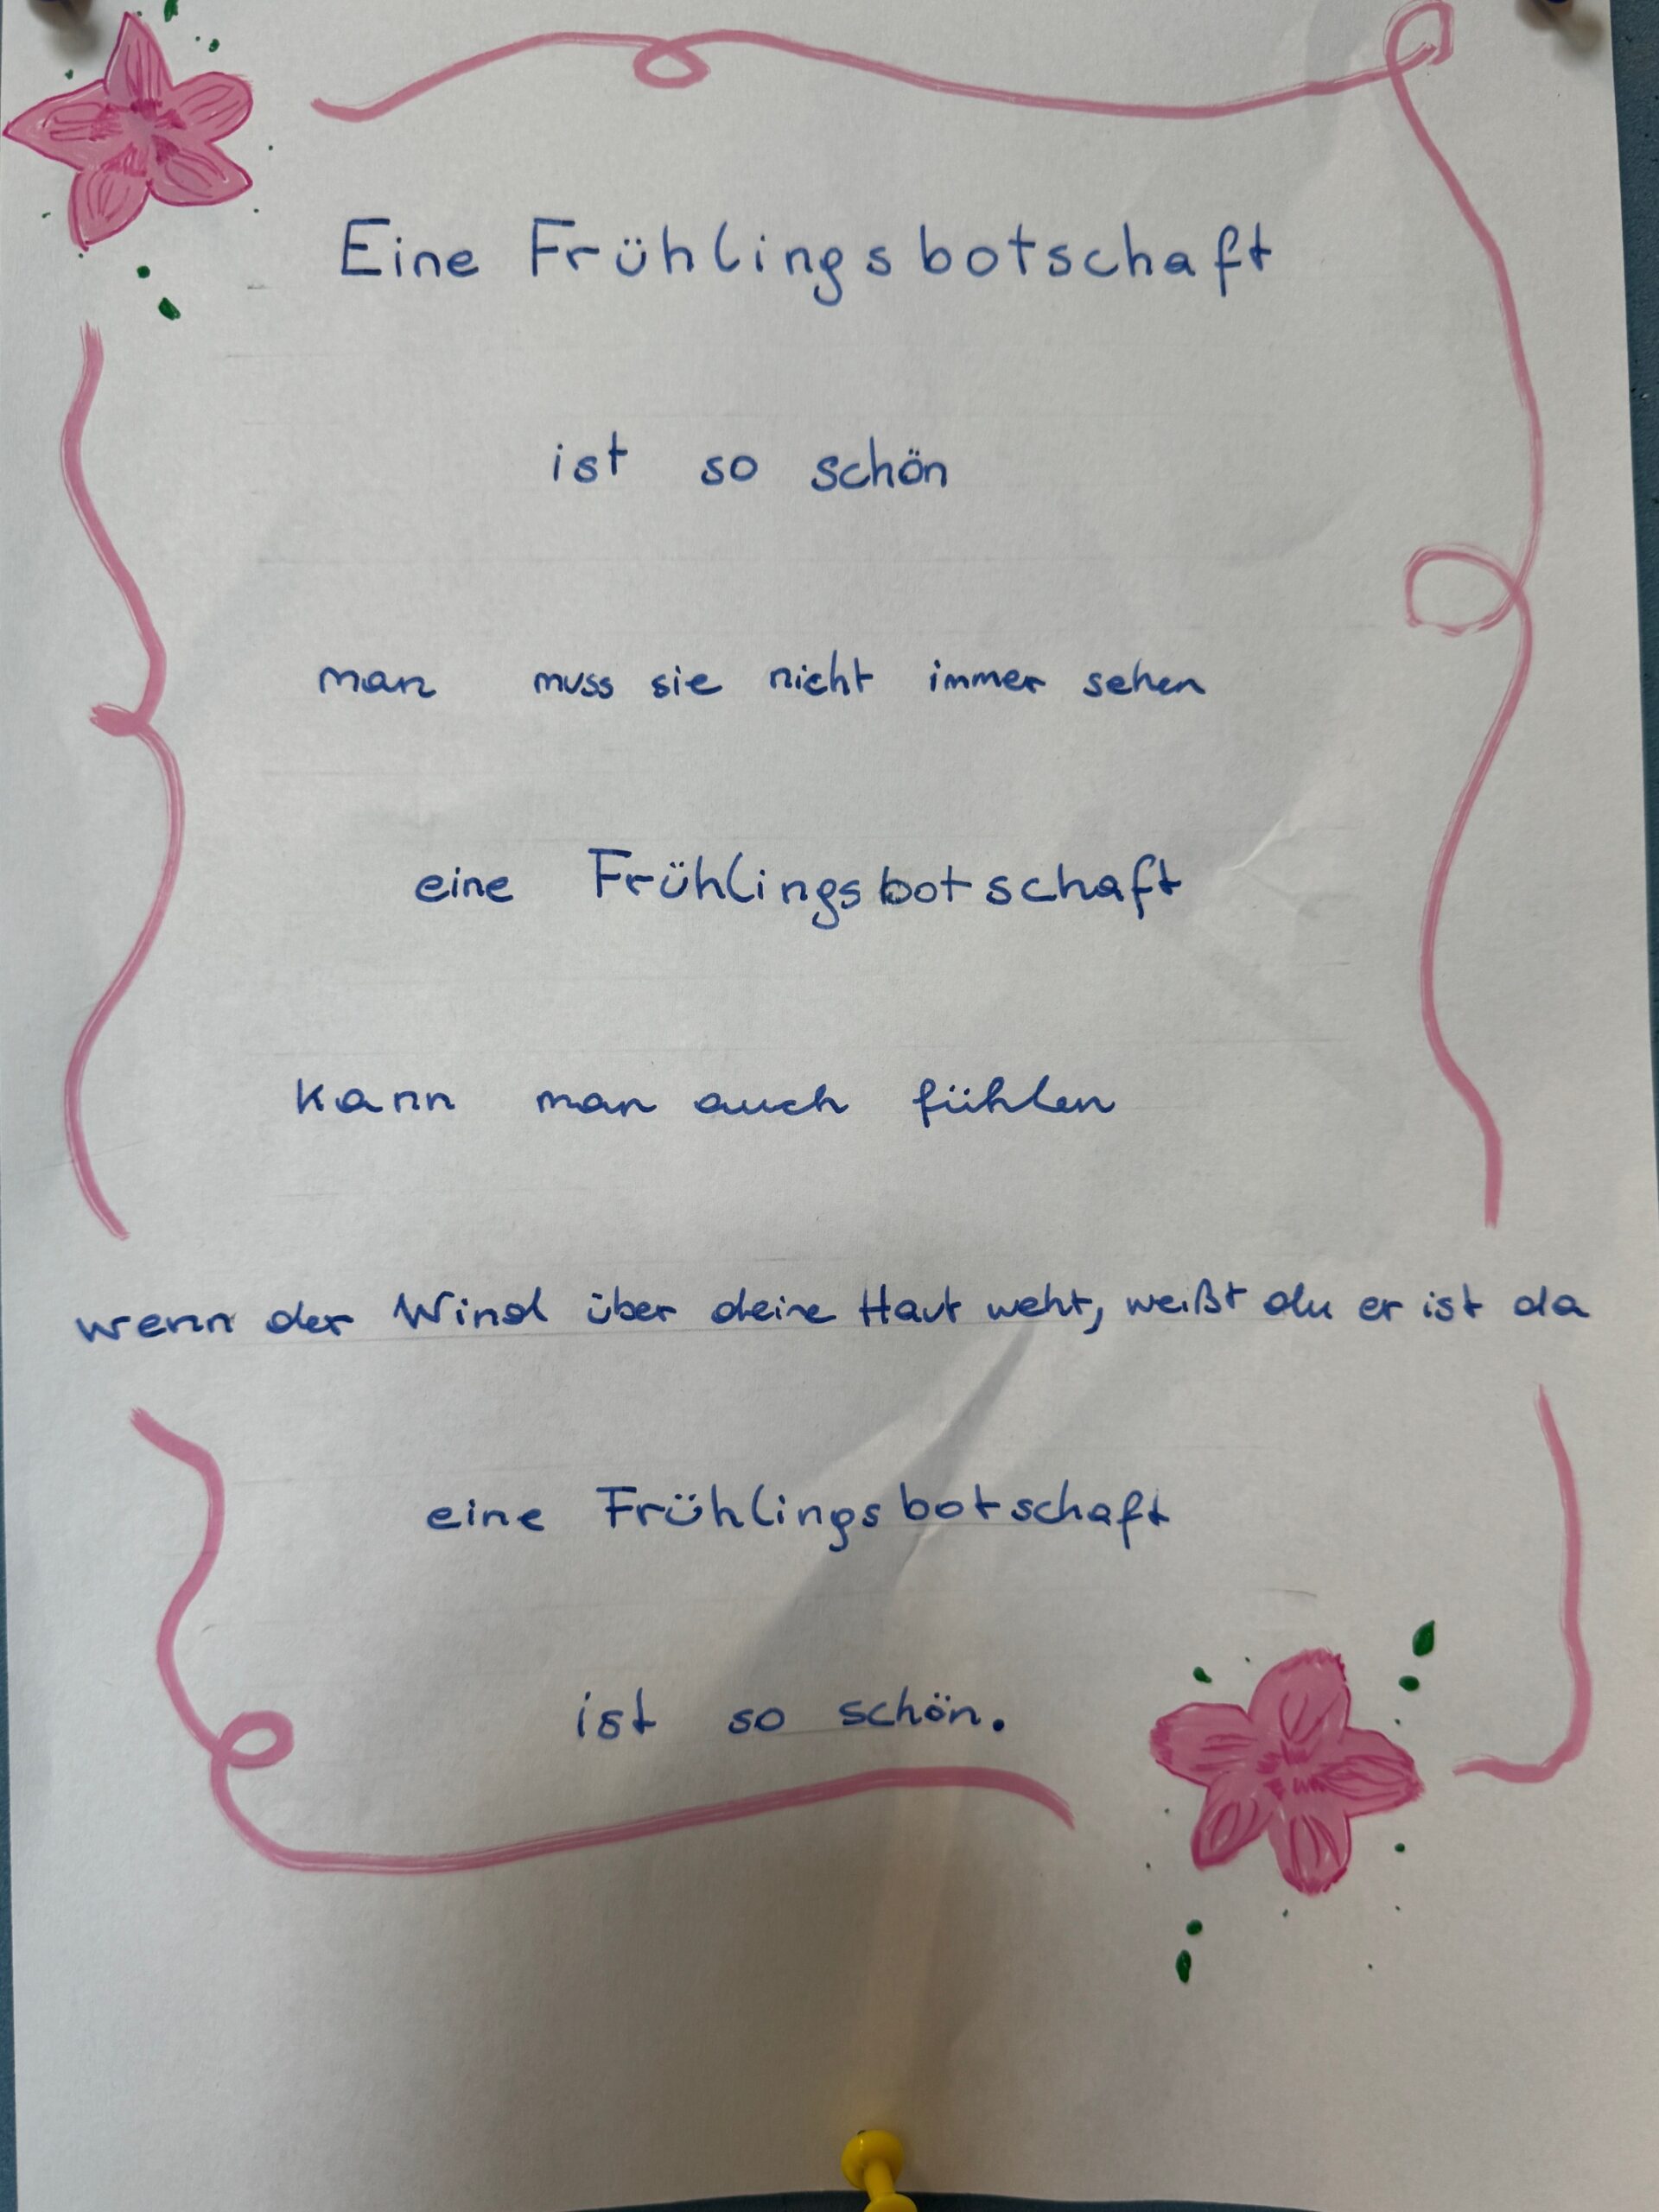 Eine Frühlingsbotschaft
ist so schön
man muss sie nicht immer sehen
eine Frühlingsbotschaft
kann man auch fühlen
wenn der Wind über deine Haut weht, weißt du er ist da
eine Frühlingsbotschaft
ist so schön.